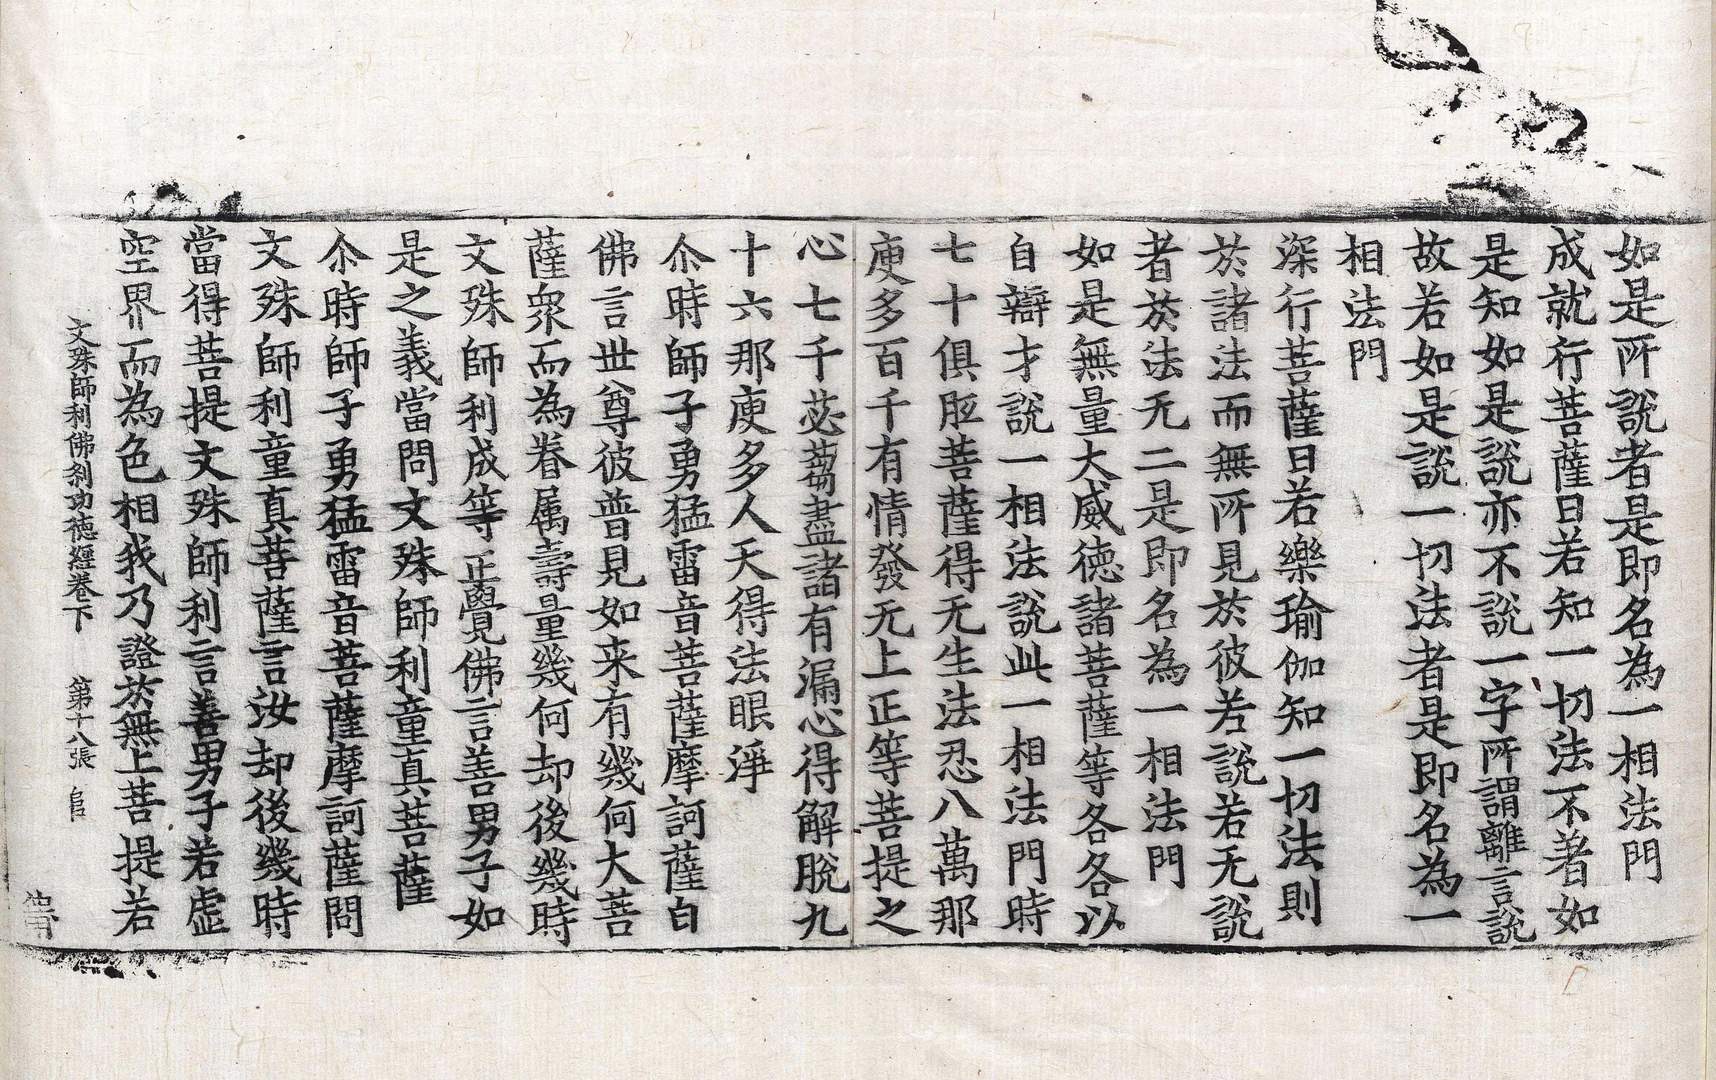 如是所說者是即名為一相法門
成就行菩薩曰若知一切法不著如
是知如是說亦不說一字所謂離言說
故若如是說一切法者是即名為一
相法門
深行菩薩曰若樂瑜伽知一切法則
於諸法而無所見於彼若說若无說
者於法无二是即名為一相法門
如是無量大威德諸菩薩等各各以
自辯才說一相法說此一相法門時
七十俱胝菩薩得无生法忍八萬那
庾多百千有情發无上正等菩提之
心七千苾蒭盡諸有漏心得解脫九
十六那庾多人天得法眼淨
尒時師子勇猛雷音菩薩摩訶薩白
佛言世尊彼普見如来有幾何大菩
薩衆而為眷属壽量幾何却後幾時
文殊師利成等正覺佛言善男子如
是之義當問文殊師利童真菩薩
尒時師子勇猛雷音菩薩摩訶薩問
文殊師利童真菩薩言汝却後幾時
當得菩提文殊師利言善男子若虛
空界而為色相我乃證於無上菩提若
文殊師利佛刹功德經卷下 第十八張 官